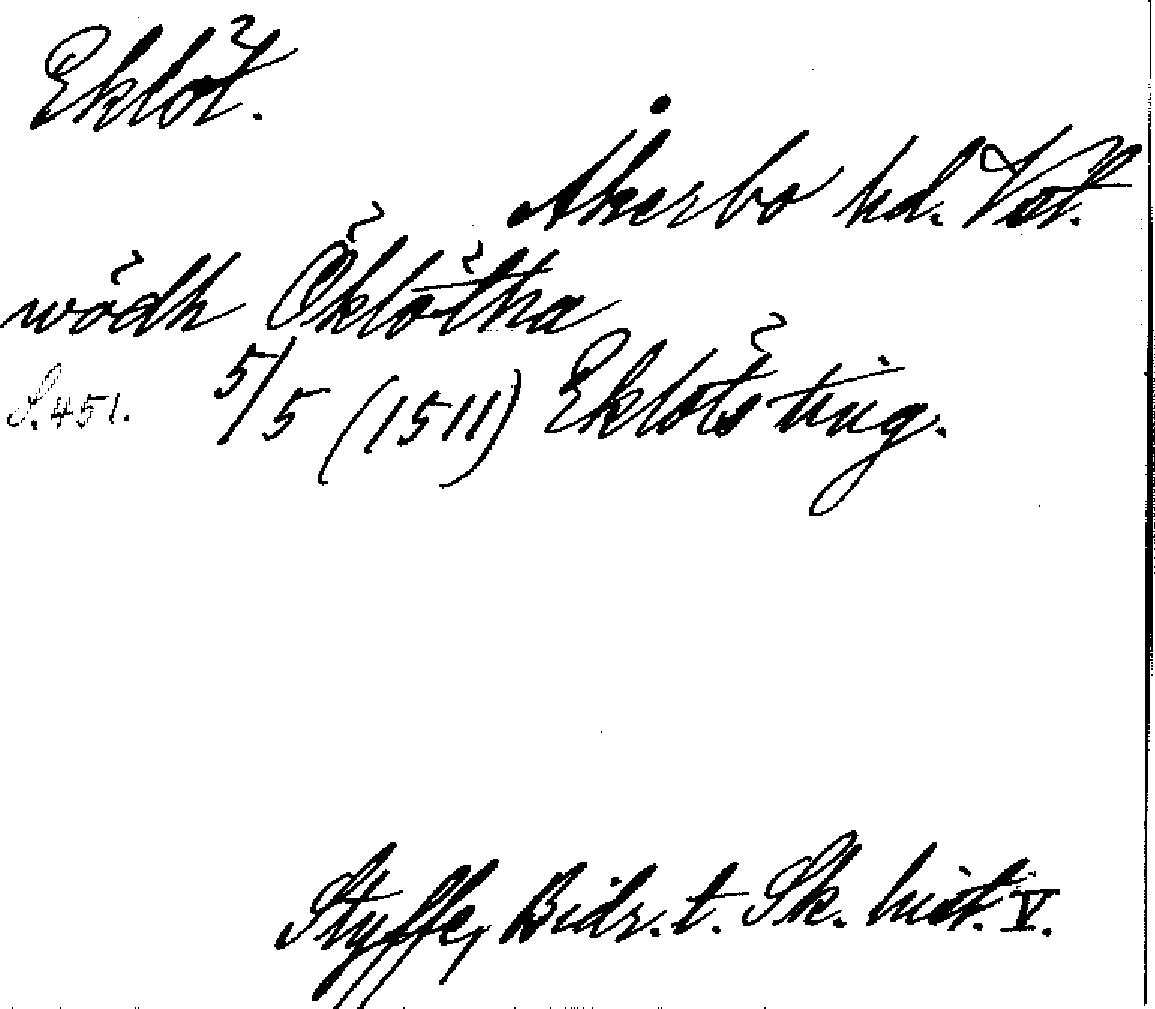 Eklöt.
Åkerbo hd. Vstm.
wödh Öklötha
S. 451. 5/5 (1511) Eklöts ting.
Styffe, Bidr. t. Sk. hist. V.